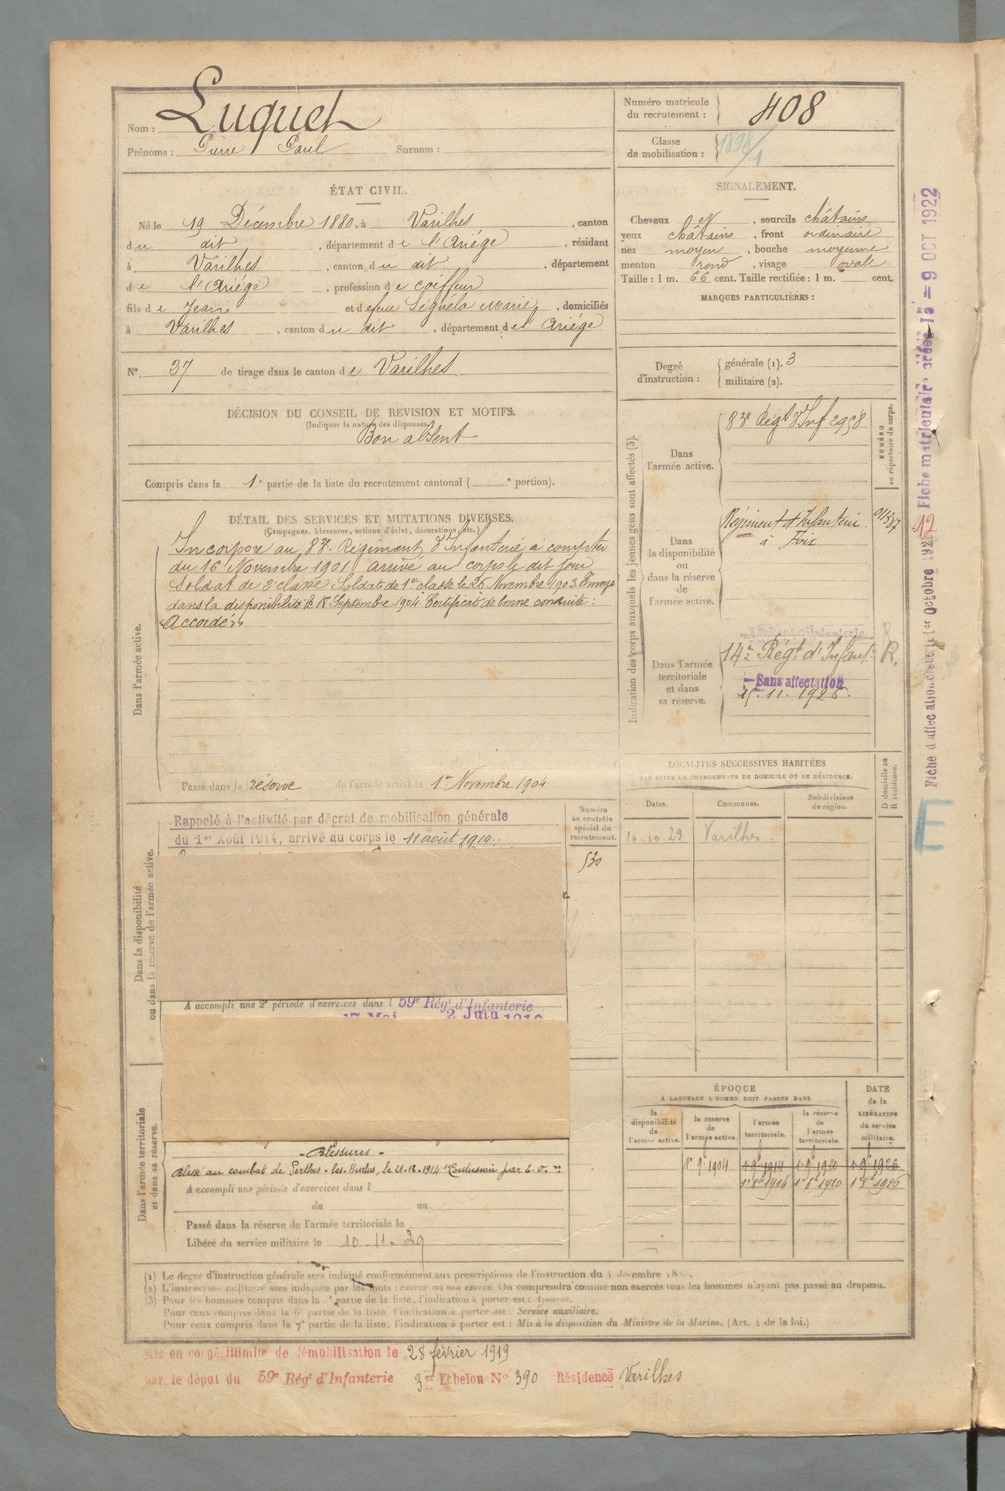 Nom : Luquet
Prénoms : Pierre Paul Surnom :
Numéro matricule du recrutement : 408
Classe de mobilisation : 1898/1
ÉTAT CIVIL.
Né le 19 Décembre 1880, à Varilhes, canton
du dit, département de l'Ariége, résidant
à Varilhes, canton du dit, département
de l'Ariége, profession de coiffeur
fils de Jean et de feue Séguéla Marie, domiciliés
à Varilhes, canton du dit, département de l'Ariége
N° 37 de tirage dans le canton de Varilhes
DÉCISION DU CONSEIL DE REVISION ET MOTIFS.
(Indiquer la nature des dispenses)
Bon absent
Compris dans la 1e partie de la liste du recrutement cantonal ( e portion).
SIGNALEMENT.
Cheveux et, sourcils châtains
yeux châtains, front ordinaire
nez moyen, bouche moyenne
menton rond, visage ovale
Taille : 1 m. 66 cent. Taille rectifiée : 1 m. cent.
MARQUES PARTICULIÈRES :
Degré d'instruction : générale (1). 3
militaire (2).
DÉTAIL DES SERVICES ET MUTATIONS DIVERSES.
(Campagnes, blessures, actions d'éclat, décorations, etc.)
Dans l'armée active.
Incorporé au 83e Régiment d'Infanterie à compter
du 16 Novembre 1901 arrivé au corps le dit jour
Soldat de 2e classe Soldat de 1re classe le 26 Novembre 1903. Envoyé
dans la disponibilité le 18 Septembre 1904 Certificat de bonne conduite :
Accordé
Passé dans la réserve de l'armée active le 1er Novembre 1904
Indication des corps auxquels les jeunes gens sont affectés (3).
NUMÉRO au répertoire du corps.
Dans l'armée active.
83e Régt d'Inf
Dans la disponibilité ou dans la réserve de l'armée active.
Régiment d'Infanterie
à Foix
Dans l'armée territoriale et dans sa réserve.
14e Régt d'Infant.
Sans affectation
R.
Fiche matriculaire créée le = 9 OCT 1922
12
E
LOCALITÉS SUCCESSIVES HABITÉES
PAR SUITE DE CHANGEMENTS DE DOMICILE OU DE RÉSIDENCE.
Dates. Communes. Subdivisions de région. D domicile ou R résidence.
16.10.29 Varilhes.
Dans la disponibilité ou dans la réserve de l'armée active.
Rappelé à l'activité par décret de mobilisation générale
du 1er Août 1914, arrivé au corps le 11 août 1914.
Numéro au contrôle spécial du recrutement.
530
A accompli une 2e période d'exercices dans l 59e Régt d'Infanterie
17 Mai 2 Juin 1910
Dans l'armée territoriale et dans sa réserve.
- Blessures -
Blessé au combat de Perthes-les-Hurlus, le 21-12-1914
A accompli une période d'exercices dans l
du au
Passé dans la réserve de l'armée territoriale le
Libéré du service militaire le 10-11-29
ÉPOQUE
À LAQUELLE L'HOMME DOIT PASSER DANS
DATE de la LIBÉRATION du service militaire.
la disponibilité de l'armée active. la réserve de l'armée active. l'armée territoriale. la réserve de l'armée territoriale.
(1) Le degré d'instruction générale sera indiqué conformément aux prescriptions de l'instruction du 4 décembre
(2) L'instruction militaire sera indiquée par les mots : exercé ou non exercé. On comprendra comme non exercés tous les hommes n'ayant pas passé au drapeau.
(3) Pour les hommes compris dans la partie de la liste, l'indication à porter est :
Pour ceux compris dans la 6e partie de la liste, l'indication à porter est : Service auxiliaire.
Pour ceux compris dans la 7e partie de la liste, l'indication à porter est : Mis à la disposition du Ministre de la Marine. (Art. 4 de la loi.)
Mis en congé illimité de démobilisation le 28 février 1919
par le dépôt du 59e Régt d'Infanterie 3e Echelon N° 390 Résidence Varilhes